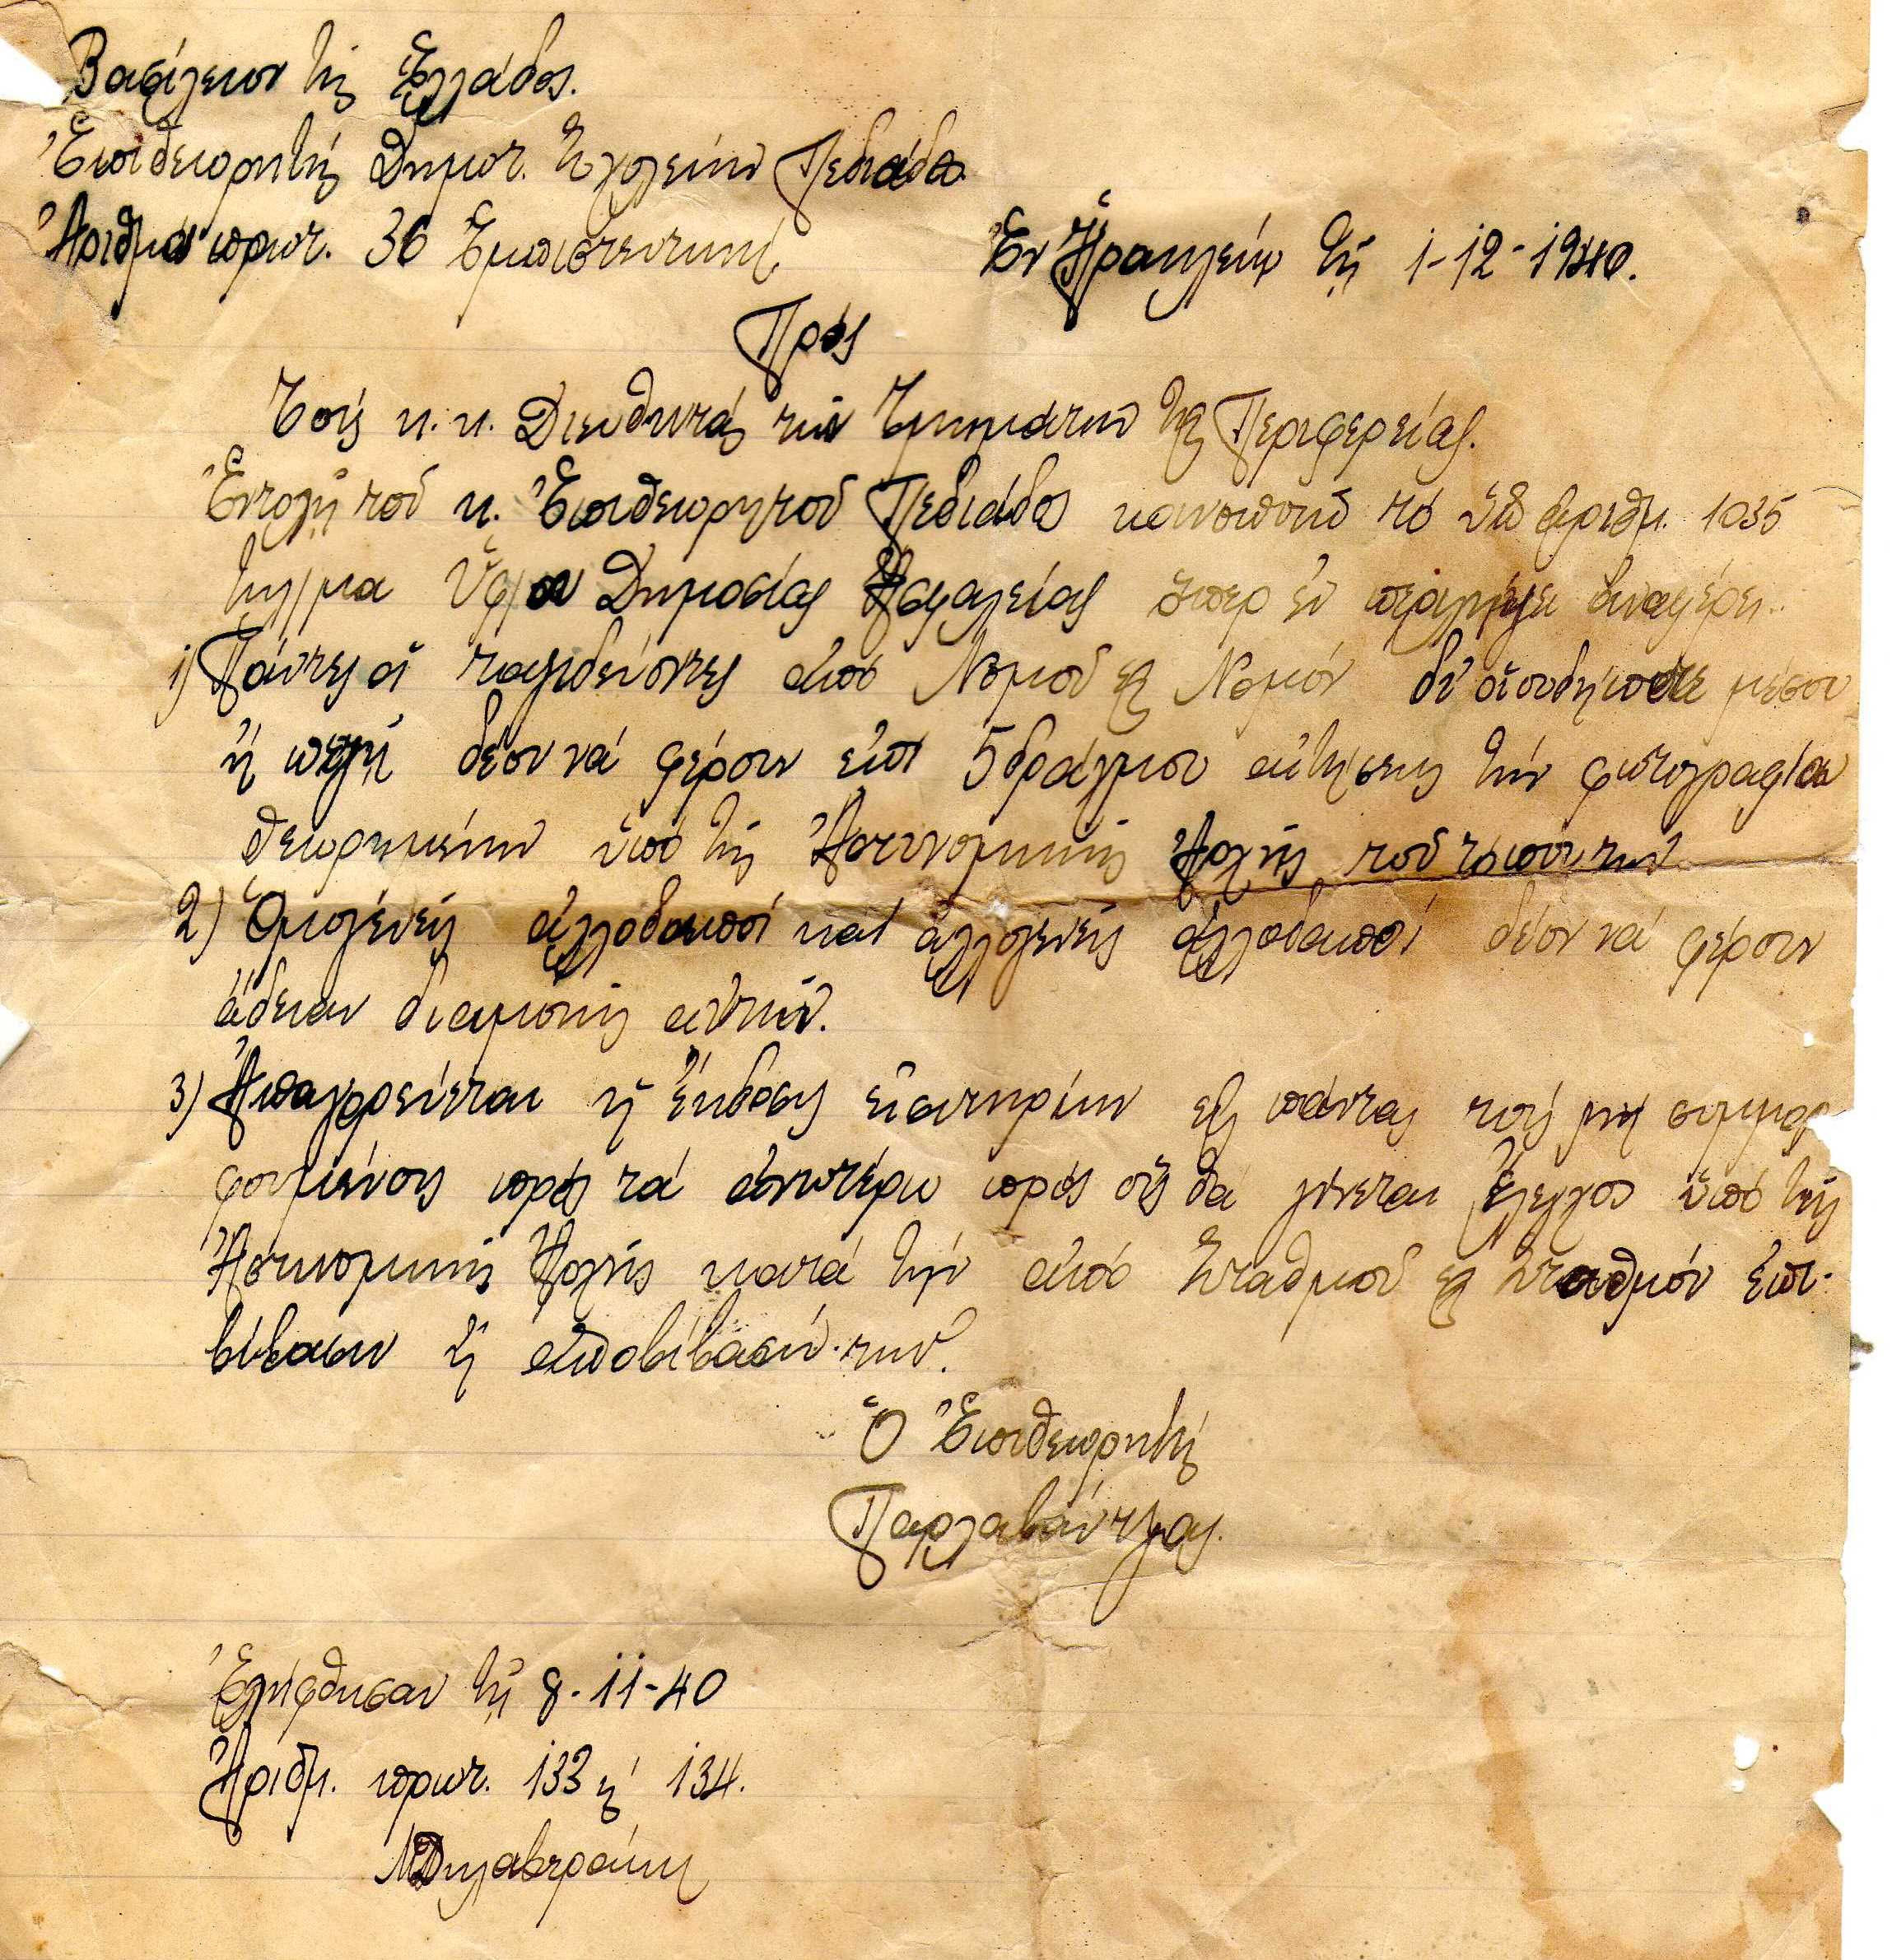 Βασίλειον τῆς Ἑλλάδος.
Ἐπιθεωρητής Δημοτ. Σχολείων Πεδιάδος
Ἀριθμός πρωτ. 36 Ἐμπιστευτική.
Ἐν Ἡρακλείῳ τῇ 1-12-1940.
Πρός
Τούς κ.κ. Διευθυντάς τῶν Τμημάτων τῆς Περιφερείας.
Ἐντολῇ τοῦ κ. Ἐπιθεωρητοῦ Πεδιάδος κοινοποιῶ τό ὑπ' ἀριθμ. 1035
τηλ/μα Ὑφ/ου Δημοσίας Ἀσφαλείας ὅπερ ἐν περιλήψει ἀναφέρει..
1) Πάντες οἱ ταξιδεύοντες ἀπό Νομοῦ εἰς Νομόν δι' οἱουδήποτε μέσου
ἤ πεζῇ δέον νά φέρουν ἐπί 5δράχμου αἰτήσεως τήν φωτογραφίαν
θεωρημένην ὑπό τῆς Ἀστυνομικῆς Ἀρχῆς τοῦ τόπου των
2) Ὁμογενεῖς ἀλλοδαποί καί ἀλλογενεῖς ἀλλοδαποί δέον νά φέρουν
ἄδειαν διαμονῆς αὐτῶν.
3) Ἀπαγορεύεται ἡ ἔκδοσις εἰσιτηρίων εἰς πάντας τούς μή συμμορ
φουμένους πρός τά ἀνωτέρω πρός οὕς θά γίνεται ἔλεγχος ὑπό τῆς
Ἀστυνομικῆς Ἀρχῆς κατά τήν ἀπό Σταθμοῦ εἰς Σταθμόν ἐπι-
βίβασιν ἤ ἀποβίβασίν των.
Ὁ Ἐπιθεωρητής
Παρλαβάντζας.
Ἐλήφθησαν τῇ 8-11-40
Ἀριθμ. πρωτ. 133 ϗ 134.